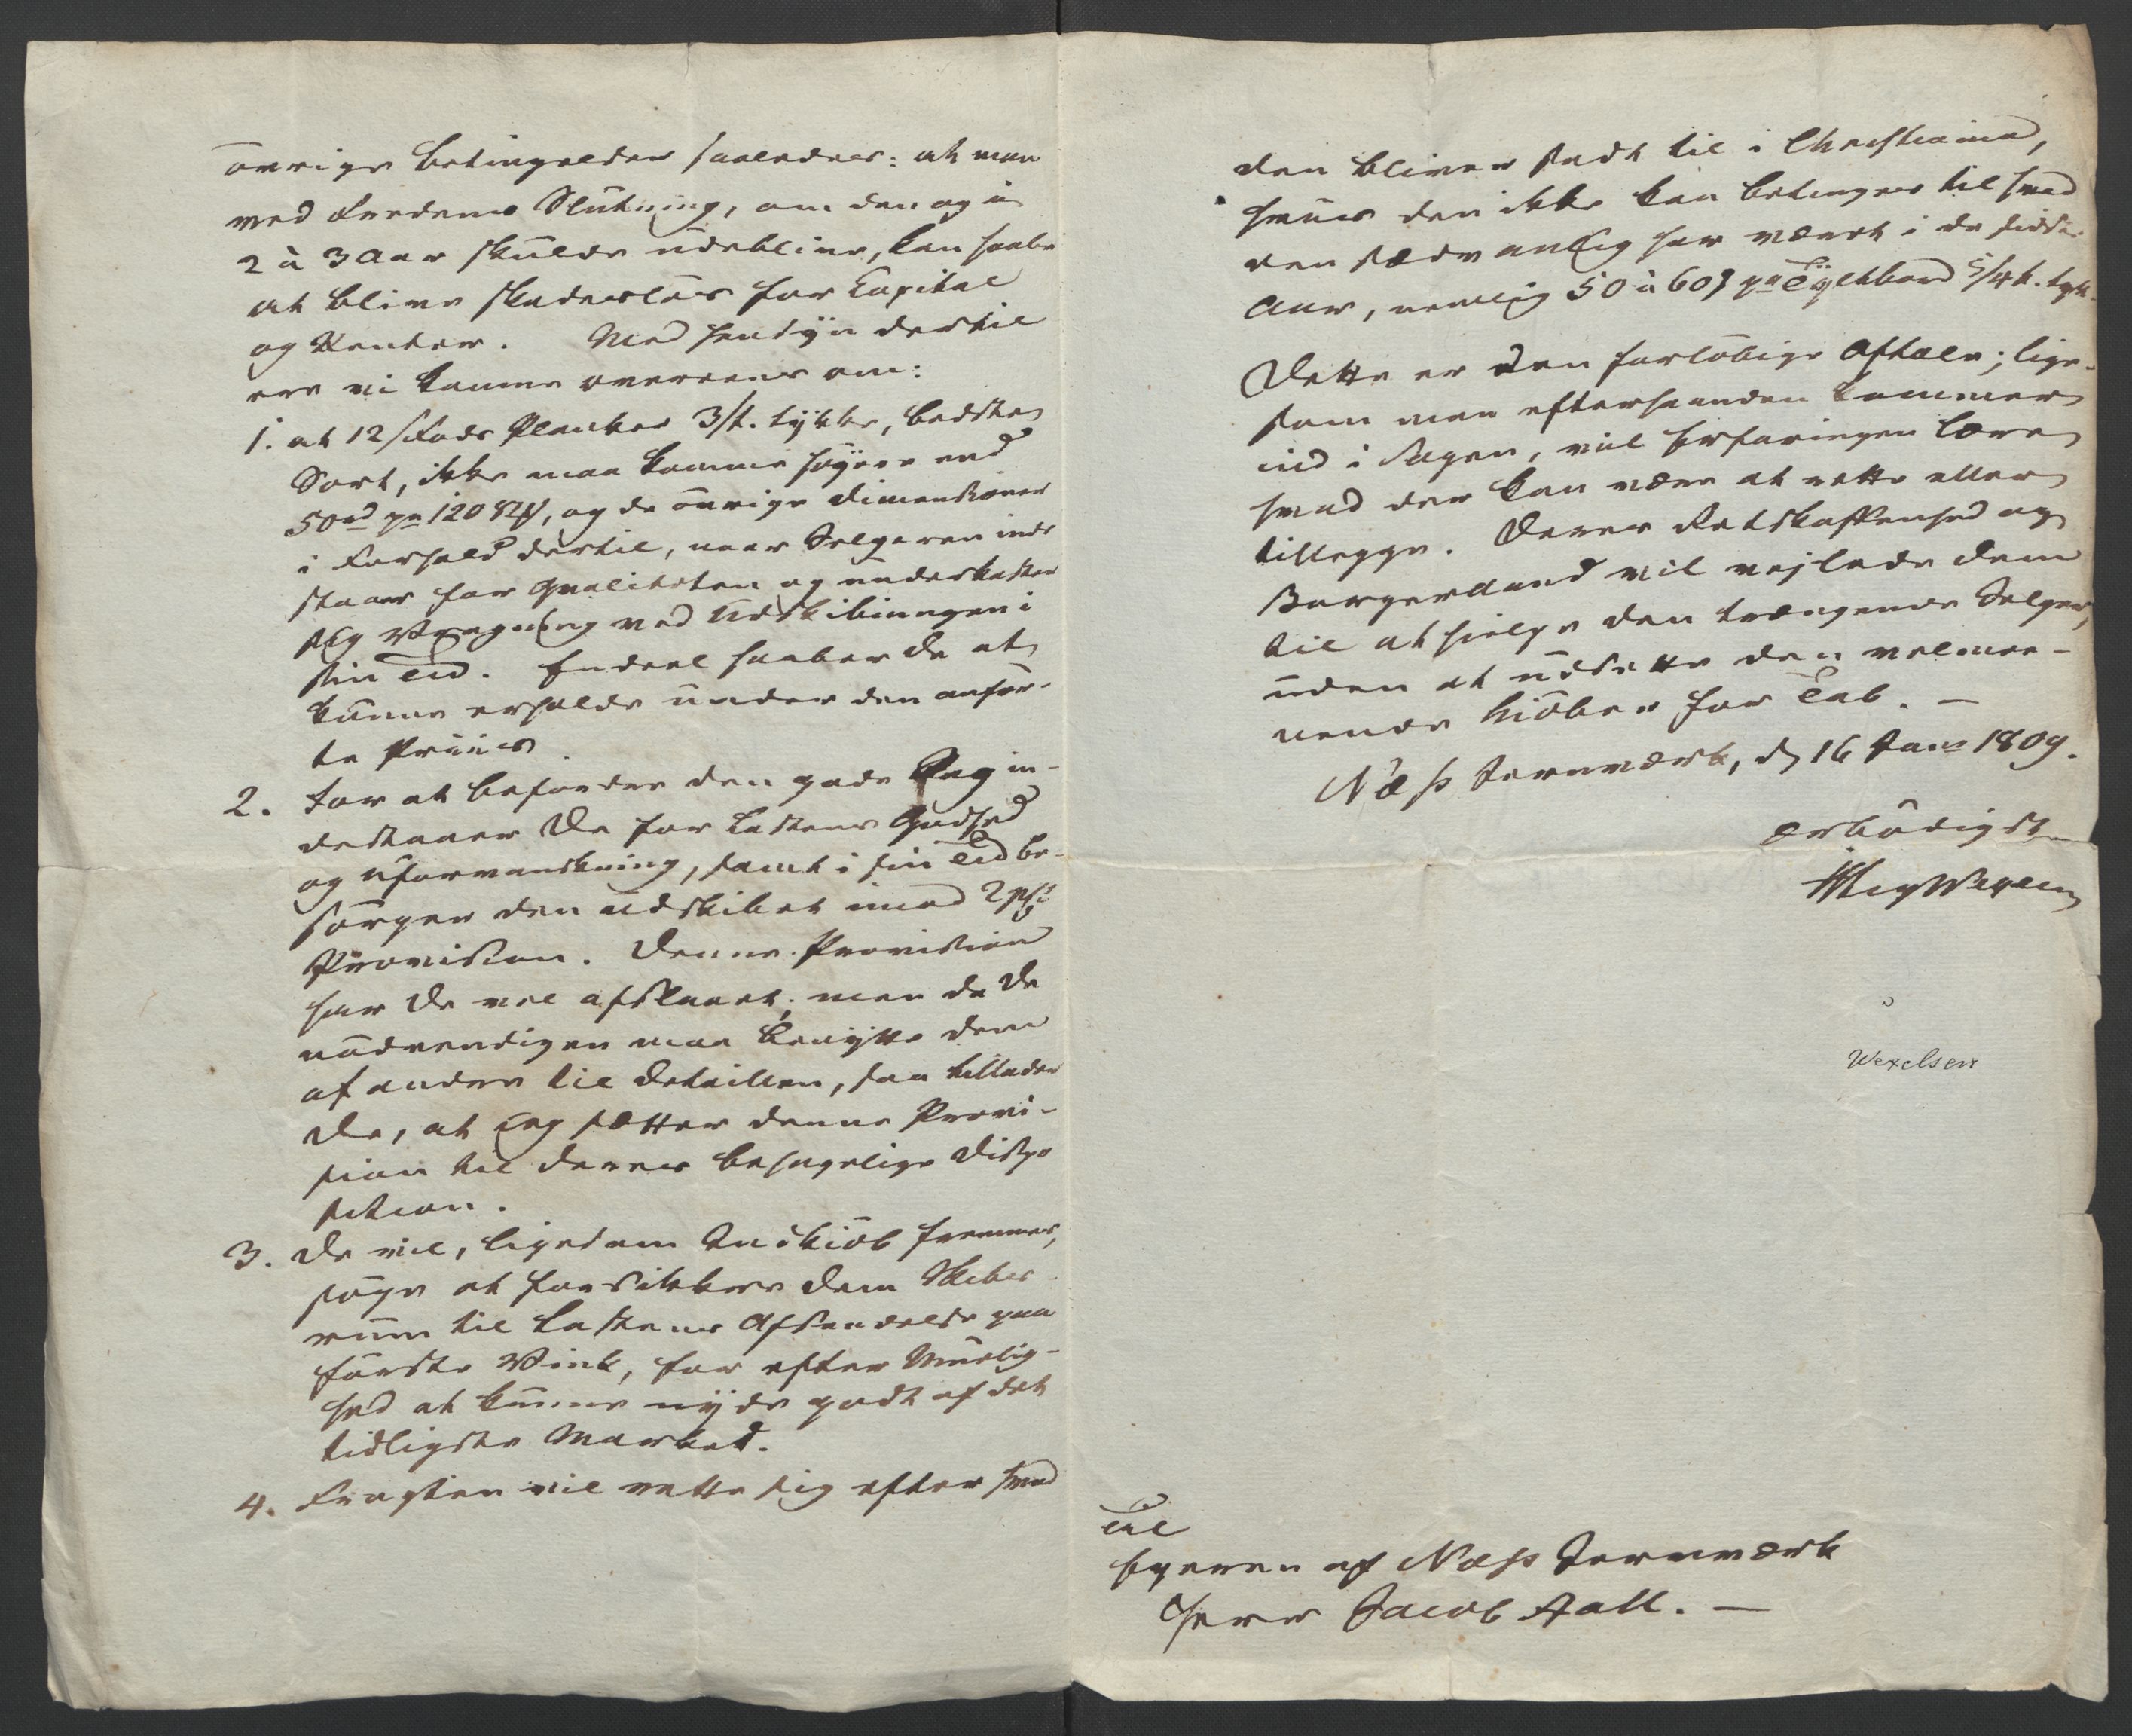 övrige betingelser saaledes: at man
ved Fredens Slutning, om den og i
2 à 3 Aar skulde udeblive, kan haabe
at blive skadeslös for Capital
og Renter. Med Hensÿn dertil
ere vi komne overeens om:
1. at 12/Fods Planker 3/t. tÿkke, bedste
Sort, ikke maa komme höÿere end
50 pr 120 , og de övrige Dimensioner
i Forhold dertil, naar Selgeren inde
staaer for Qvaliteten og underkaster
sig Vragning ved Udskibningen i
sin Tid. Endeel haaber De at
kunne erholde under den anför-
te Priis
2. For at befordre den gode Sag in-
destaaer De for Lastens Godhed
og uformindskning, samt i sin Tid be-
sörger den udskibet imod 2 pCt
Provision. Denne Provision
har De vel afslaaet; men da De
nödvendigen maa benÿtte dem
af andre til Detaillen, saa tillader
De, at jeg sætter denne Provi-
sion til Deres behagelige Dispo
sition.
3. De vil, ligesom Indkiöb fremmes,
söge at forsikkre dem Skibs-
rum til Lastens Afsendelse paa
förste Vink, for efter Muelig-
hed at kunne nÿde godt af det
tidligste Marked.
4. Fragten vil rette sig efter hvad
den bliver sadt til i Christiania,
hvis den ikke kan betinges til hvad
den sædvanlig har været i de sidste
Aar, nemlig 50 à 60 pr Tÿlt bord 5/4 t. tyk.
Dette er den forlöbige Aftale; lige-
som man efterhaanden kommer
ind i Sagen, vil Erfaringen lære
hvad der kan være at rette eller
tillegge. Deres Retskaffenhed og
Borgeraand vil vejlede dem
til at hielpe den trængende Selger,
uden at udsætte den velmee-
nende Kiöber for Tab. —
Næss Jernværk, d 16 Jan 1809.
ærbödigst
Wexelsen
Til
Eyeren af Næss Jernværk
Herr Jacob Aall. —